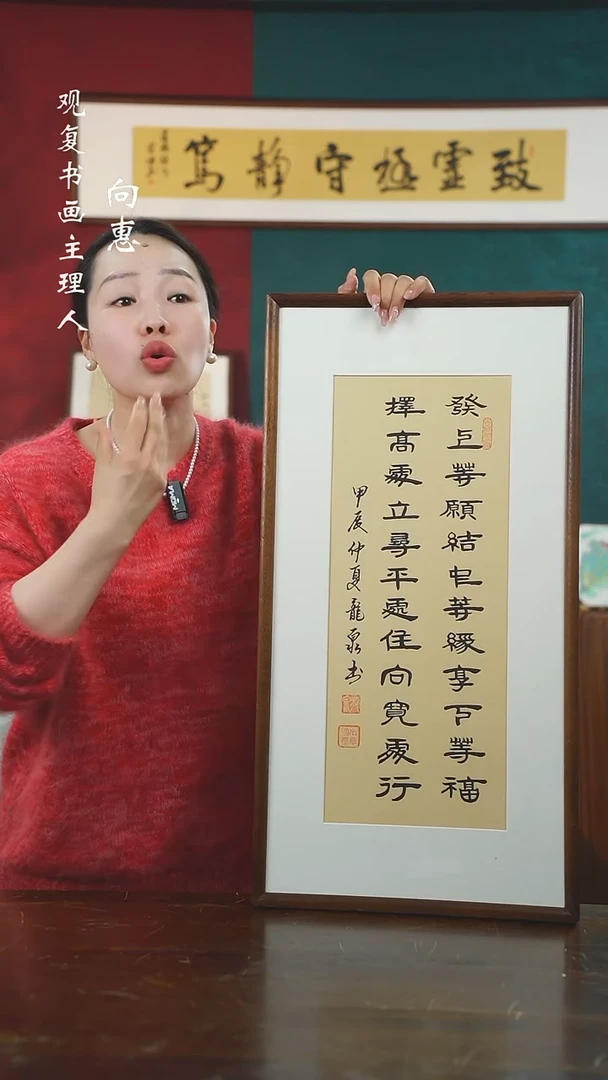 观复书画主理人
向惠
致虛極守靜篤
發上等願結中等緣享下等福
擇高處立尋平處住向寬處行
甲辰仲夏龍泉书